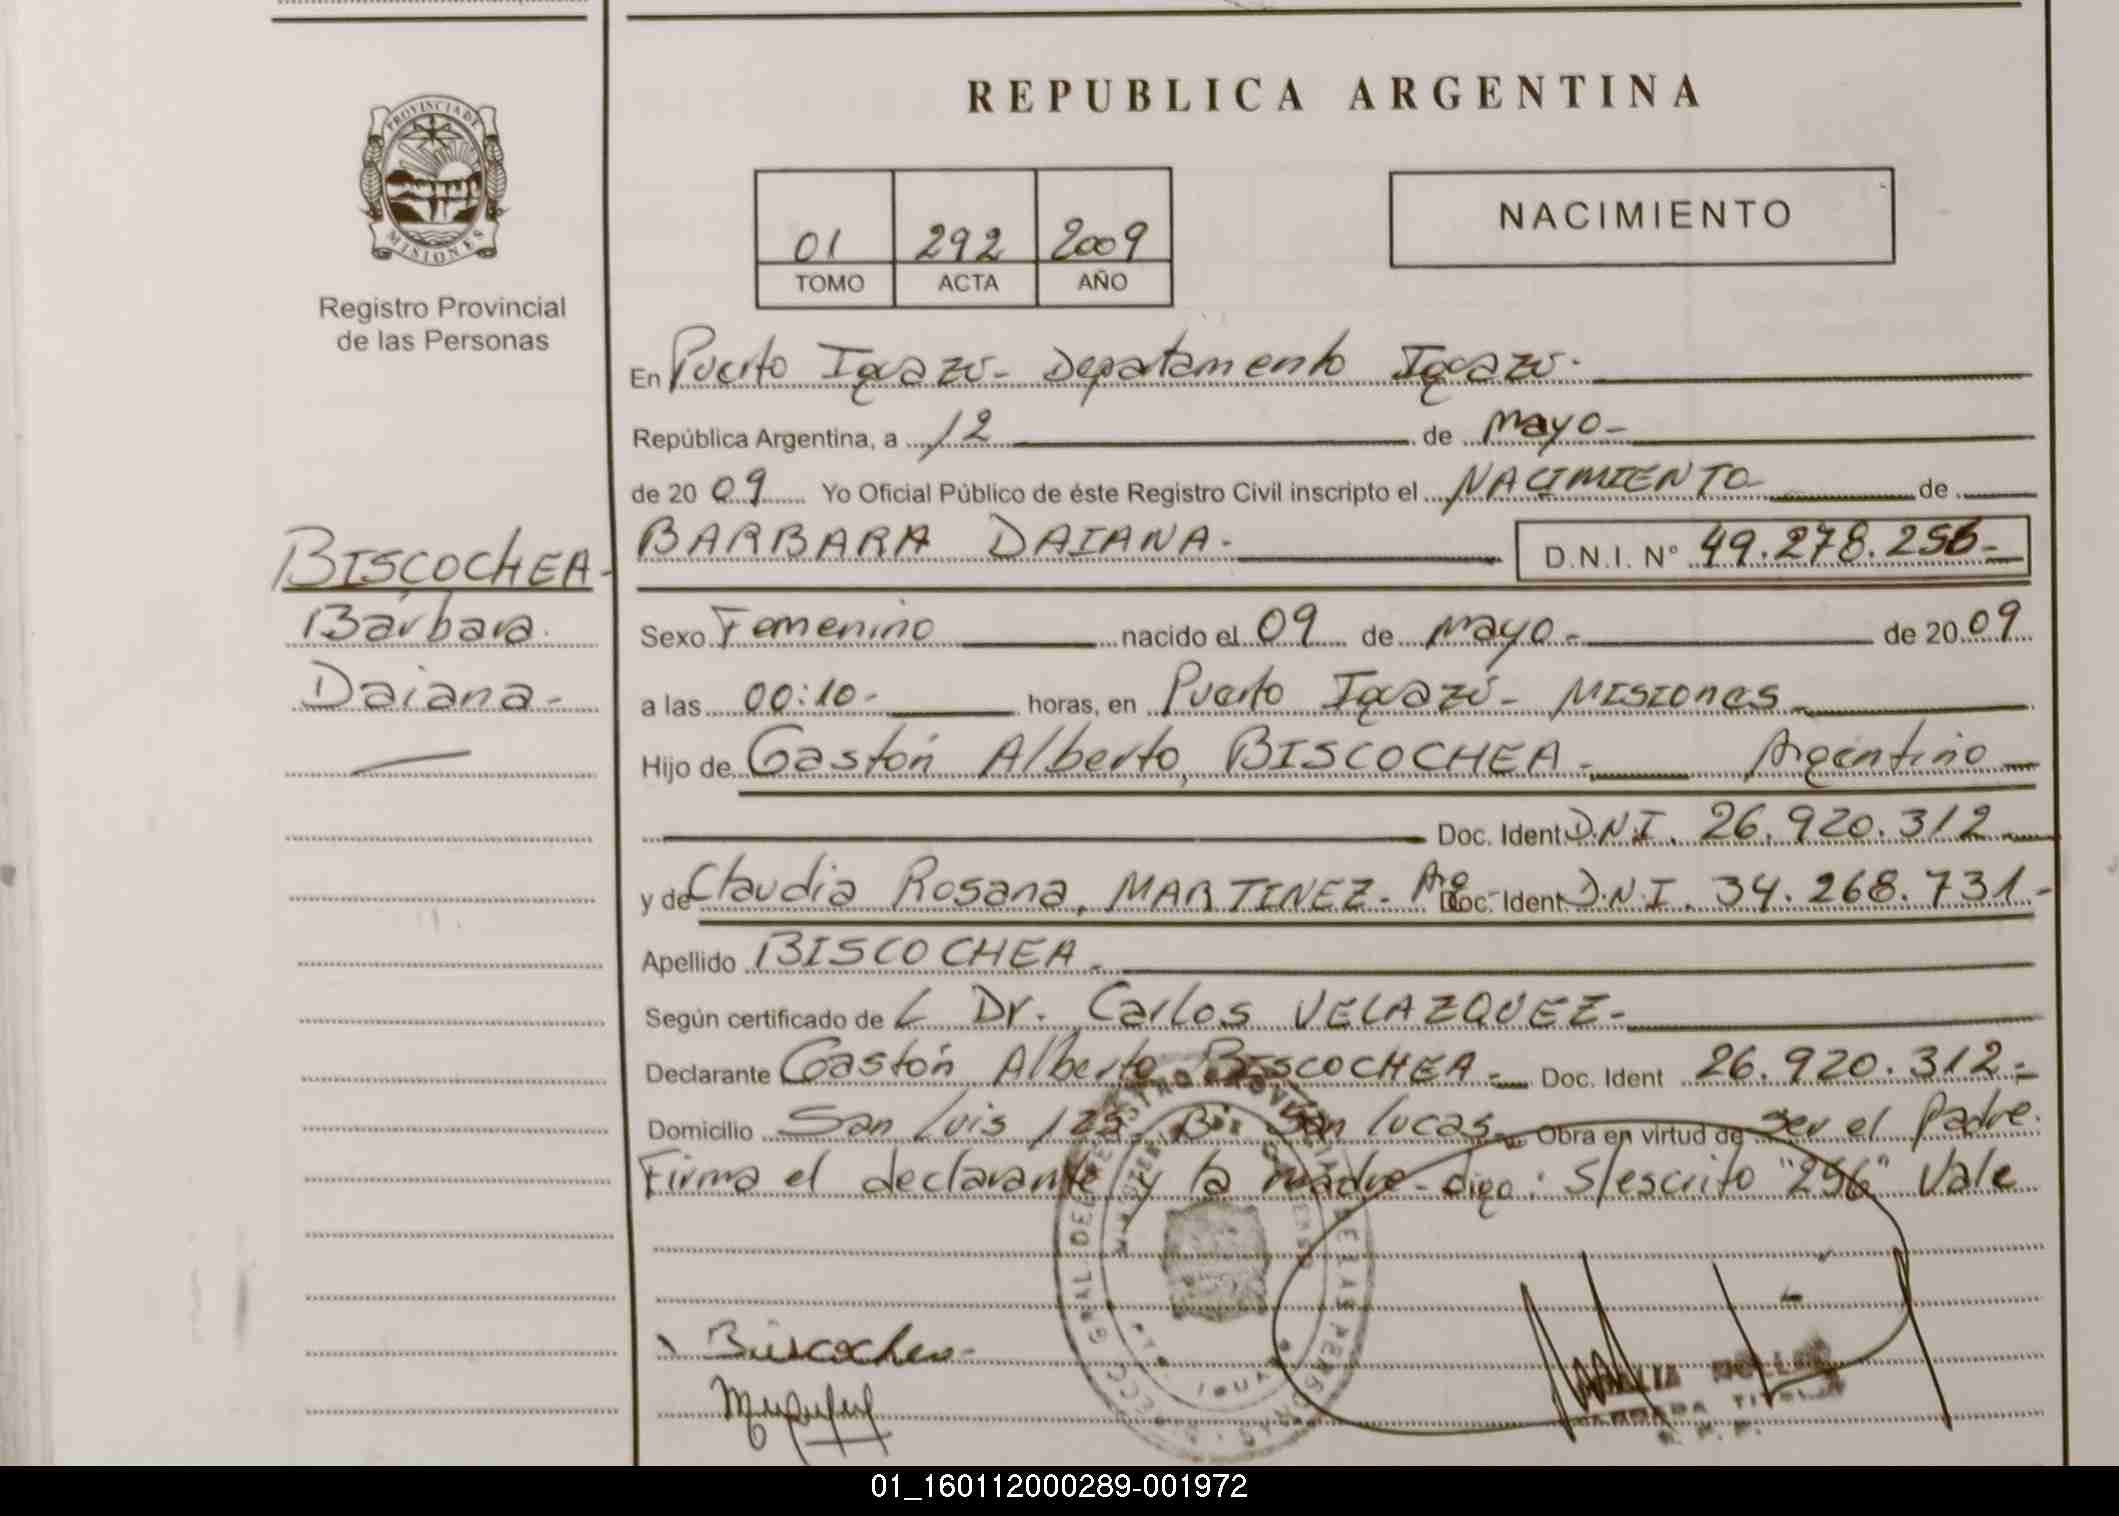 REPUBLICA ARGENTINA
PROVINCIA DE
MISIONES
Registro Provincial
de las Personas
01 292 2009
TOMO ACTA AÑO
NACIMIENTO
En Puerto Iguazú - Departamento Iguazú.
República Argentina, a 12 de mayo -
de 20 09 Yo Oficial Público de éste Registro Civil inscripto el NACIMIENTO de
BARBARA DAIANA - D.N.I. Nº 49.278.256-
BISCOCHEA -
Bárbara
Daiana -
Sexo Femenino nacido el 09 de mayo - de 20 09
a las 00:10 - horas, en Puerto Iguazú - Misiones -
Hijo de Gastón Alberto, BISCOCHEA - Argentino
Doc. Ident D.N.I. 26.920.312
y de Claudia Rosana, MARTINEZ - Arg Doc. Ident. D.N.I. 34.268.731 -
Apellido BISCOCHEA -
Según certificado de L Dr. Carlos VELAZQUEZ -
Declarante Gastón Alberto BISCOCHEA - Doc. Ident 26.920.312 -
Domicilio San Luis 125 Bº San Lucas - Obra en virtud de ser el Padre.
Firma el declarante y la madre - digo: S/escrito "256" Vale
Biscochea
01_160112000289-001972